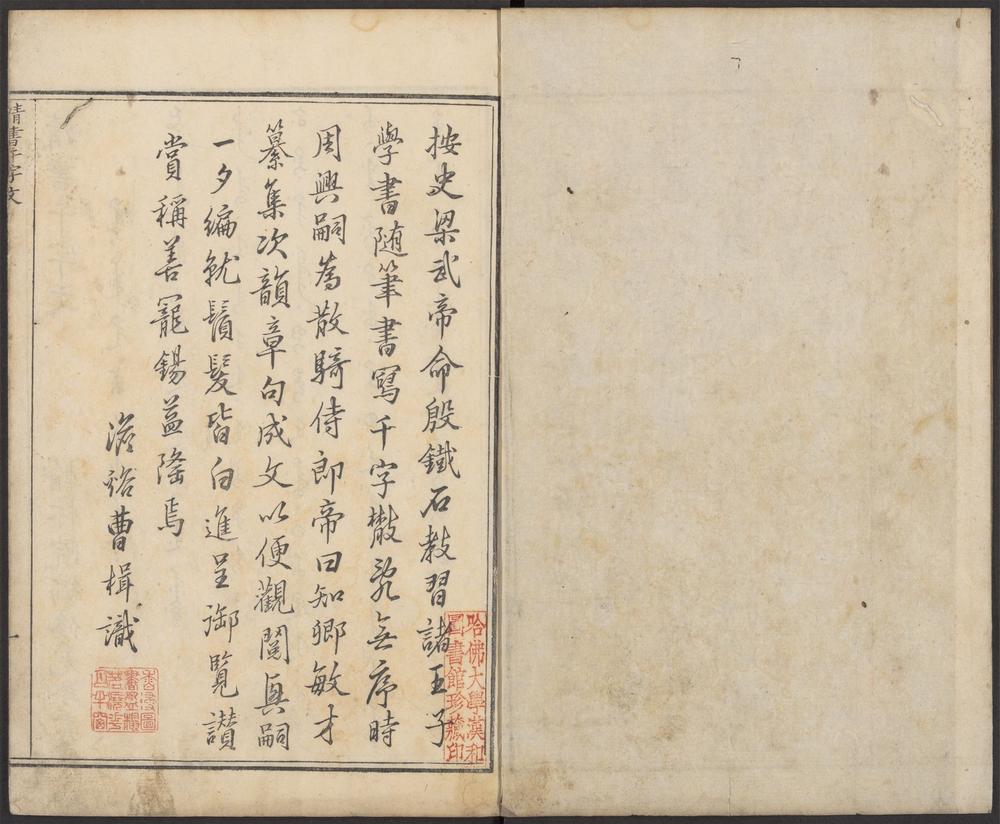 哈佛大學漢和
圖書館珍藏印
按史梁武帝命殷鐵石教習諸王子
學書随筆書寫千字散乱无序時
周興嗣為散騎侍郎帝曰知卿敏才
纂集次韻章句成文以便觀閱興嗣
一夕編就鬚髮皆白進呈御覽讃
賞稱善寵錫益隆焉
裕曹楫識
清書千字文
一